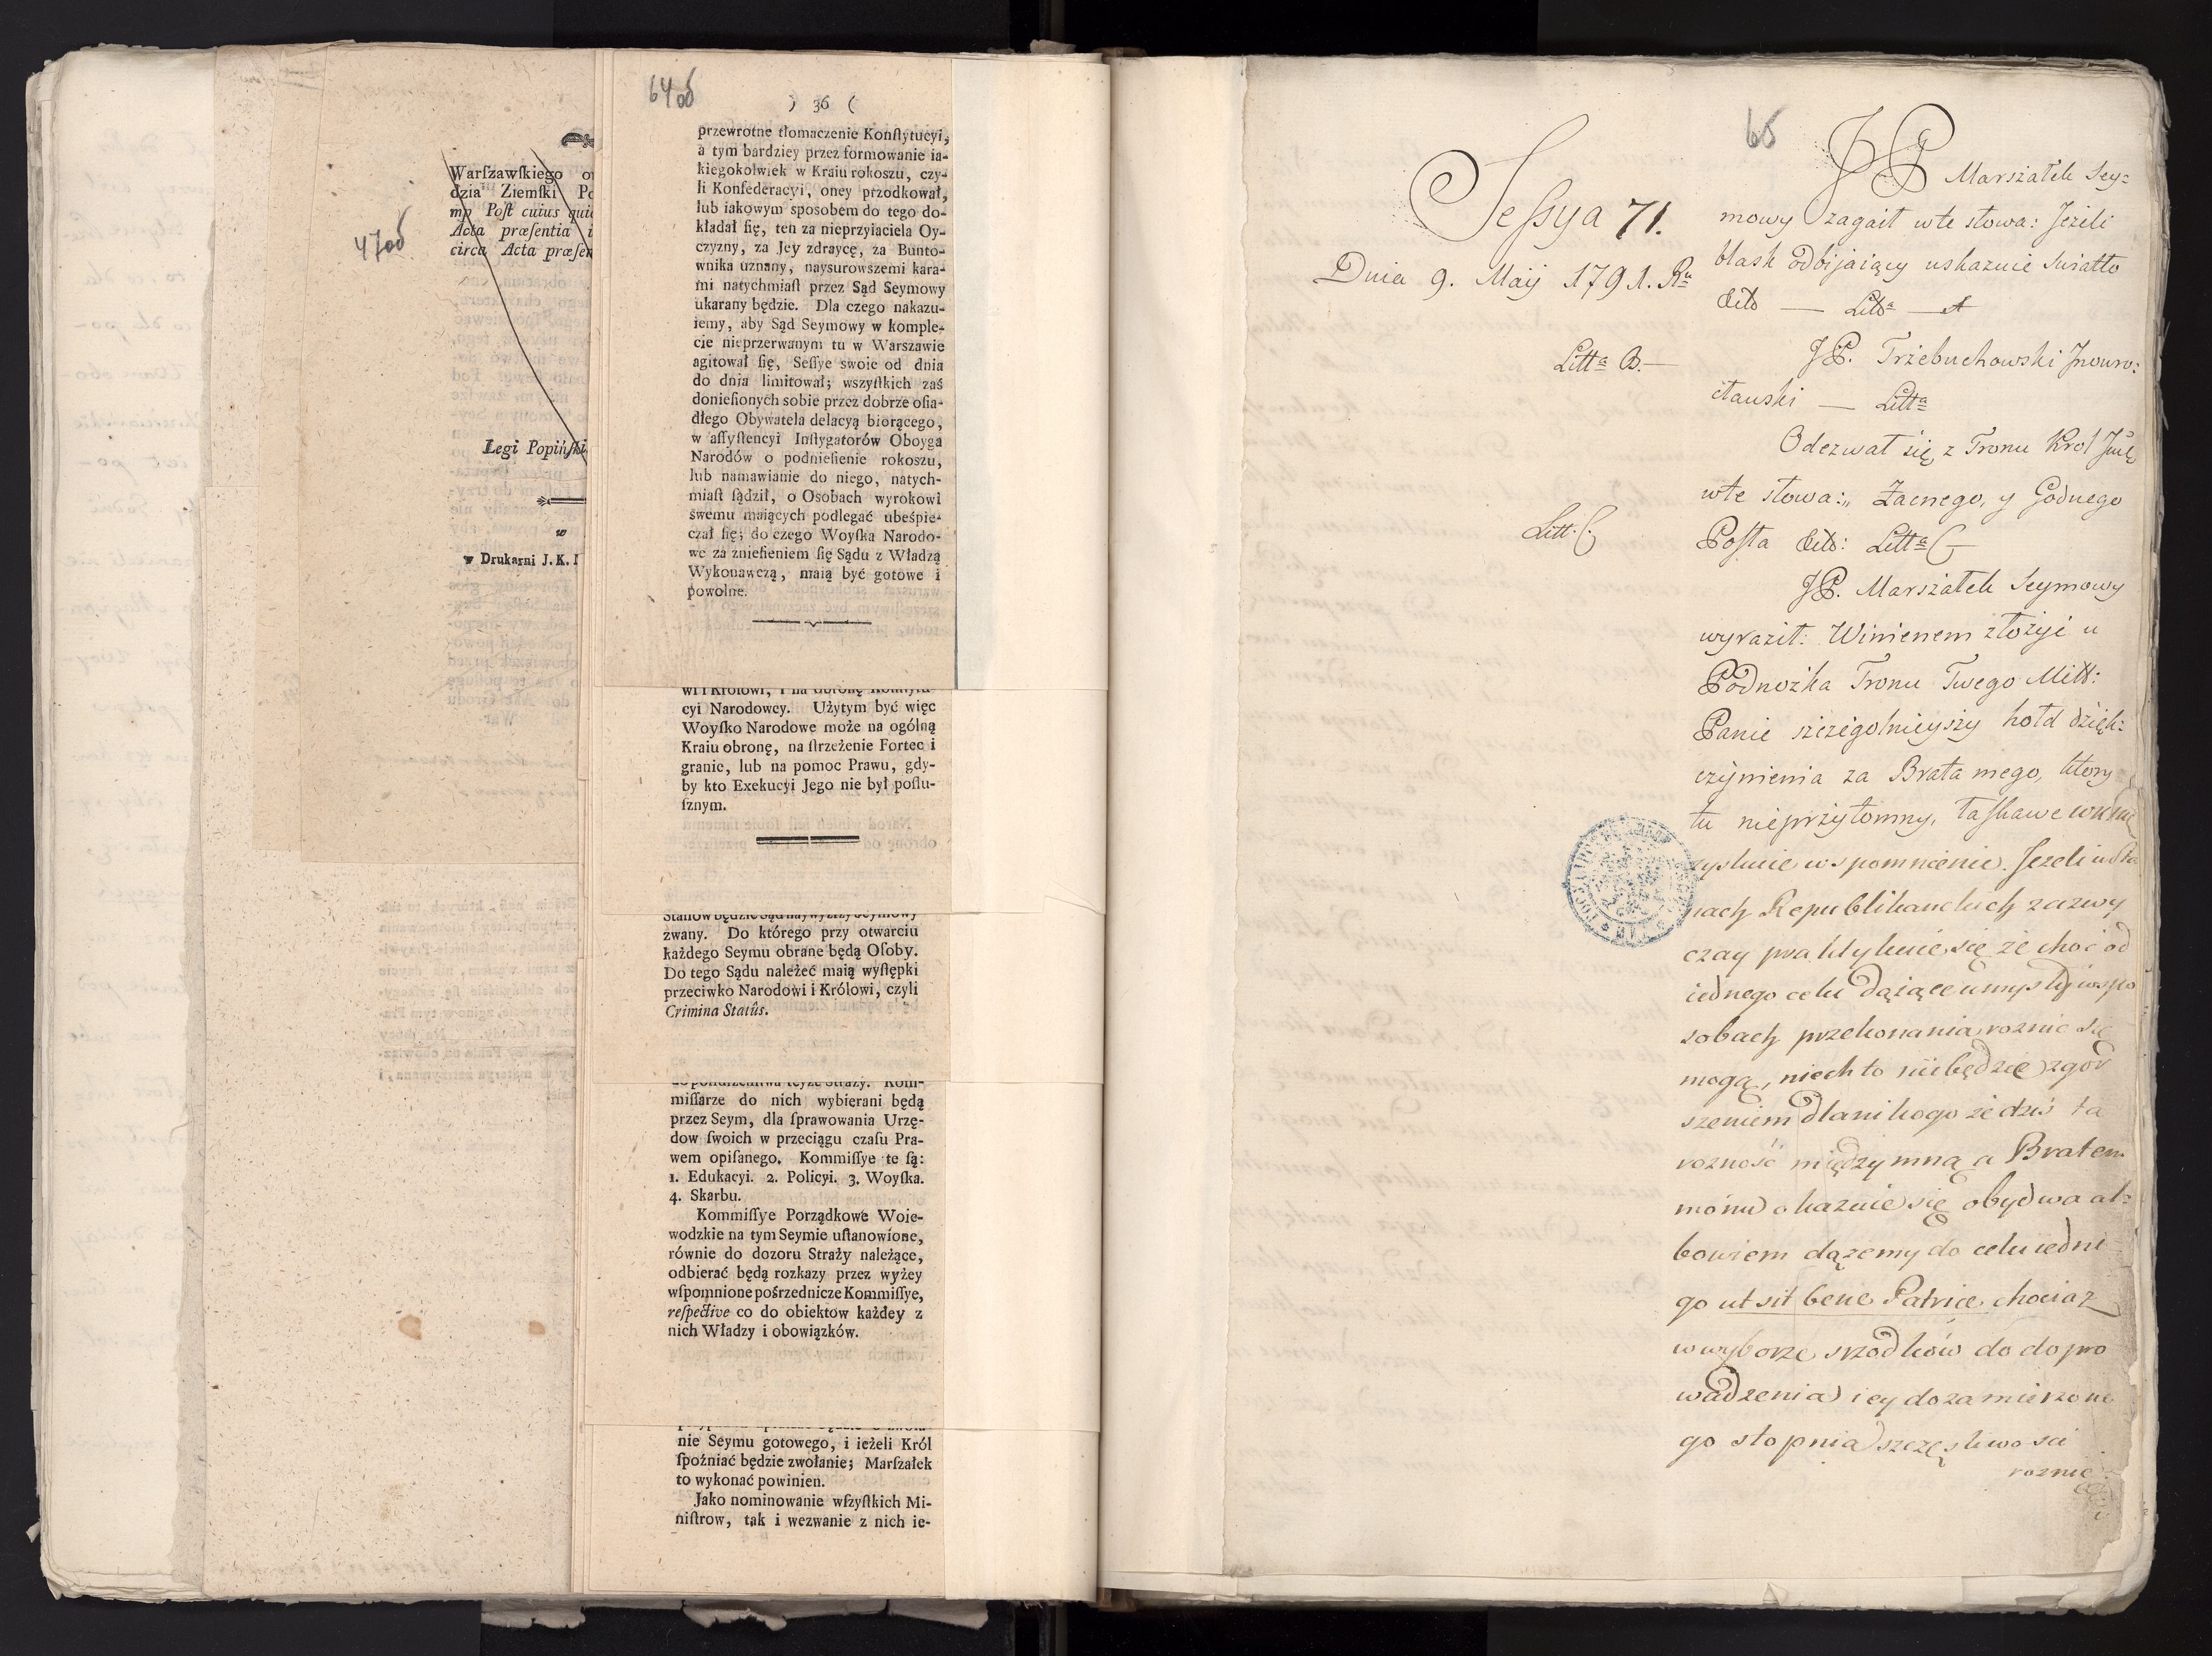 47об
Warſzawſkiego
dzia Ziemſki
mp Poſt cuius
Acta præſentia
circa Acta præſen
Legi Popińſki
w
w Drukarni J. K.
64об
) 36 (
przewrotne tłomaczenie Konſtytucyi,
a tym bardziey przez formowanie ia-
kiegokolwiek w Kraiu rokoszu, czy-
li Konfederacyi, oney przodkował,
lub iakowym sposobem do tego do-
kładał ſię, ten za nieprzyiaciela Oy-
czyzny, za Jey zdraycę, za Bunto-
wnika uznany, naysurowszemi kara-
mi natychmiaſt przez Sąd Seymowy
ukarany będzie. Dla czego nakazu-
iemy, aby Sąd Seymowy w komple-
cie nieprzerwanym tu w Warszawie
agitował ſię, Seſſye swoie od dnia
do dnia limitował; wszyſtkich zaś
donieſionych sobie przez dobrze oſia-
dłego Obywatela delacyą biorącego,
w aſſyſtencyi Inſtygatorów Oboyga
Narodów o podnieſienie rokoszu,
lub namawianie do niego, natych-
miaſt ſądził, o Osobach wyrokowi
swemu maiących podlegać ubeśpie-
czał ſię; do czego Woyſka Narodo-
we za znieſieniem ſię Sądu z Władzą
Wykonawczą, maią być gotowe i
powolne.
wi i Królowi, i na obronę Konſtytu-
cyi Narodowey. Użytym być więc
Woyſko Narodowe może na ogólną
Kraiu obronę, na ſtrzeżenie Fortec i
granic, lub na pomoc Prawu, gdy-
by kto Exekucyi Jego nie był poſłu-
ſznym.
Stanów będzie Sąd naywyżſzy Seymowy
zwany. Do którego przy otwarciu
każdego Seymu obrane będą Oſoby.
Do tego Sądu należeć maią wyſtępki
przeciwko Narodowi i Królowi, czyli
Crimina Statûs.
do poſłuſzeńſtwa teyże Straży. Kom-
miſſarze do nich wybierani będą
przez Seym, dla ſprawowania Urzę-
dow ſwoich w przeciągu czaſu Pra-
wem opiſanego. Kommiſſye te ſą:
1. Edukacyi. 2. Policyi. 3. Woyſka.
4. Skarbu.
Kommiſſye Porządkowe Woie-
wodzkie na tym Seymie uſtanowione,
równie do dozoru Straży należące,
odbierać będą rozkazy przez wyżey
wſpomnione pośrzednicze Kommiſſye,
reſpective co do obiektow każdey z
nich Władzy i obowiązków.
nie Seymu gotowego, i ieżeli Król
ſpoźniać będzie zwołanie; Marſzałek
to wykonać powinien.
Jako nominowanie wſzyſtkich Mi-
niſtrow, tak i wezwanie z nich ie-
65
Seſsya 71.
Dnia 9. Maÿ 1791. Ru
Litta B.
Litt. C.
JP Marszałek Sey=
mowy zagaił wte słowa: Jeżeli
blask odbijaiący uskazuie światło
Litta A
JP. Trzebuchowski Jnowro=
cławski — Litta
Odezwał się z Tronu Krol Jmć
wte słowa: „ Zacnego, y Godnego
Posła Litta C
JP. Marszałek Seymowy
wyraził: Winienem złożyć u
Podnożka Tronu Twego Miłł:
Panie szczególnieyszy hołd dzięk=
czynienia za Brata mego, ktory
tu nieprzytomny, łaskawe
zyskuie wspomnienie. Jeżeli
nach Republikanckich zazwy
czay praktykuie się że choć od
iednego celu dążące umysły wspo
sobach przekonania roznić się
mogą, niech to niebędzie zgor
szeniem dlanikogo że dziś ta
roznosć między mną a Bratem
moim okazuie się obydwa al=
bowiem dążemy do celu iedne
go ut sit bene Patriae chociaz
wwyborze srzodków do dopro
wadzenia iey do zamierzone
go stopnia szczęsliwosci
roznie